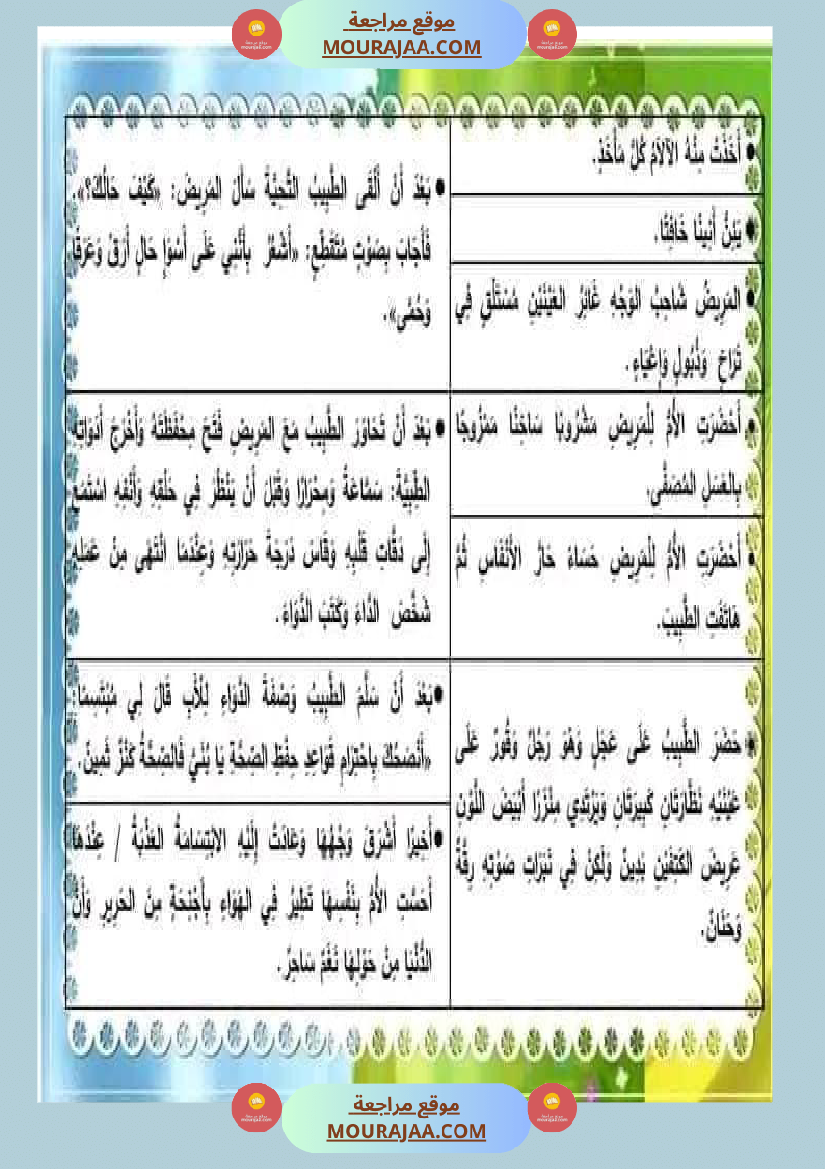 موقع مراجعة
MOURAJAA.COM
• أَخَذَتْ مِنْهُ الآلاَمُ كُلَّ مَأْخَذٍ.
• يَئِنُّ أَنِينًا خَافِتًا.
• المَرِيضُ شَاحِبُ الوَجْهِ غَائِرُ العَيْنَيْنِ مُسْتَلْقٍ فِي
تَرَاخٍ وَذُبُولٍ وَإِعْيَاءٍ.
• أَحْضَرَتِ الأُمُّ لِلْمَرِيضِ مَشْرُوبًا سَاخِنًا مَمْزُوجًا
بِالعَسَلِ المُصَفَّى.
• أَحْضَرَتِ الأُمُّ لِلْمَرِيضِ حَسَاءً حَارَّ الأَنْفَاسِ ثُمَّ
هَاتَفَتِ الطَّبِيبَ.
• حَضَرَ الطَّبِيبُ عَلَى عَجَلٍ وَهُوَ رَجُلٌ وَقُورٌ عَلَى
عَيْنَيْهِ نَظَّارَتَانِ كَبِيرَتَانِ وَيَرْتَدِي مِئْزَرًا أَبْيَضَ اللَّوْنِ
عَرِيضُ الكَتِفَيْنِ بَدِينٌ وَلَكِنْ فِي نَبَرَاتِ صَوْتِهِ رِقَّةٌ
وَحَنَانٌ.
• بَعْدَ أَنْ أَلْقَى الطَّبِيبُ التَّحِيَّةَ سَأَلَ المَرِيضَ: «كَيْفَ حَالُكَ؟».
فَأَجَابَ بِصَوْتٍ مُتَقَطِّعٍ: «أَشْعُرُ بِأَنَّنِي عَلَى أَسْوَإِ حَالٍ أَرَقٌ وَعَرَقٌ
وَحُمَّى».
• بَعْدَ أَنْ تَحَاوَرَ الطَّبِيبُ مَعَ المَرِيضِ فَتَحَ مِحْفَظَتَهُ وَأَخْرَجَ أَدَوَاتِهِ
الطِّبِّيَّةَ: سَمَّاعَةً وَمِحْرَارًا وَقَبْلَ أَنْ يَنْظُرَ فِي حَلْقِهِ وَأَنْفِهِ اسْتَمَعَ
إِلَى دَقَّاتِ قَلْبِهِ وَقَاسَ دَرَجَةَ حَرَارَتِهِ وَعِنْدَمَا انْتَهَى مِنْ عَمَلِهِ
شَخَّصَ الدَّاءَ وَكَتَبَ الدَّوَاءَ.
• بَعْدَ أَنْ سَلَّمَ الطَّبِيبُ وَصْفَةَ الدَّوَاءِ لِلْأَبِ قَالَ لِي مُبْتَسِمًا:
«أَنْصَحُكَ بِاحْتِرَامِ قَوَاعِدِ حِفْظِ الصِّحَّةِ يَا بُنَيَّ فَالصِّحَّةُ كَنْزٌ ثَمِينٌ.
• أَخِيرًا أَشْرَقَ وَجْهُهَا وَعَادَتْ إِلَيْهِ الابْتِسَامَةُ العَذْبَةُ / عِنْدَهَا
أَحَسَّتِ الأُمُّ بِنَفْسِهَا تَطِيرُ فِي الهَوَاءِ بِأَجْنِحَةٍ مِنَ الحَرِيرِ وَأَنَّ
الدُّنْيَا مِنْ حَوْلِهَا نَغَمٌ سَاحِرٌ.
موقع مراجعة
MOURAJAA.COM